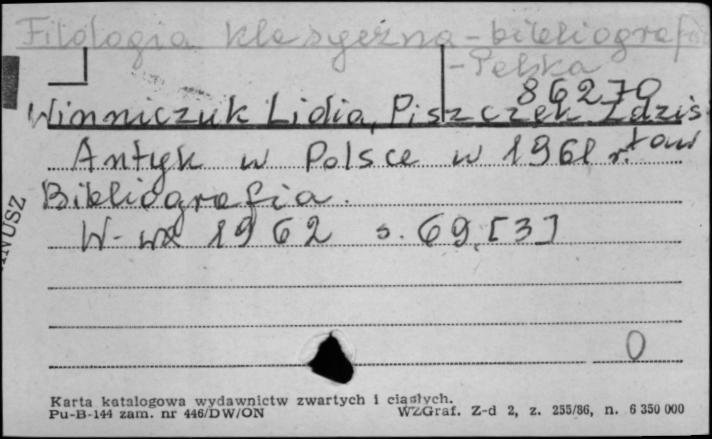 Filologia klasyczna - bibliografia
- Polska
86270
Winniczuk Lidia, Piszczek Zdzis-
ław
Antyk w Polsce w 1961 r.
Bibliografia.
W-wa 1962 s. 69, [3]
NUSZ
0
Karta katalogowa wydawnictw zwartych i ciągłych.
Pu-B-144 zam. nr 446/DW/ON WZGraf. Z-d 2, z. 255/86, n. 6 350 000